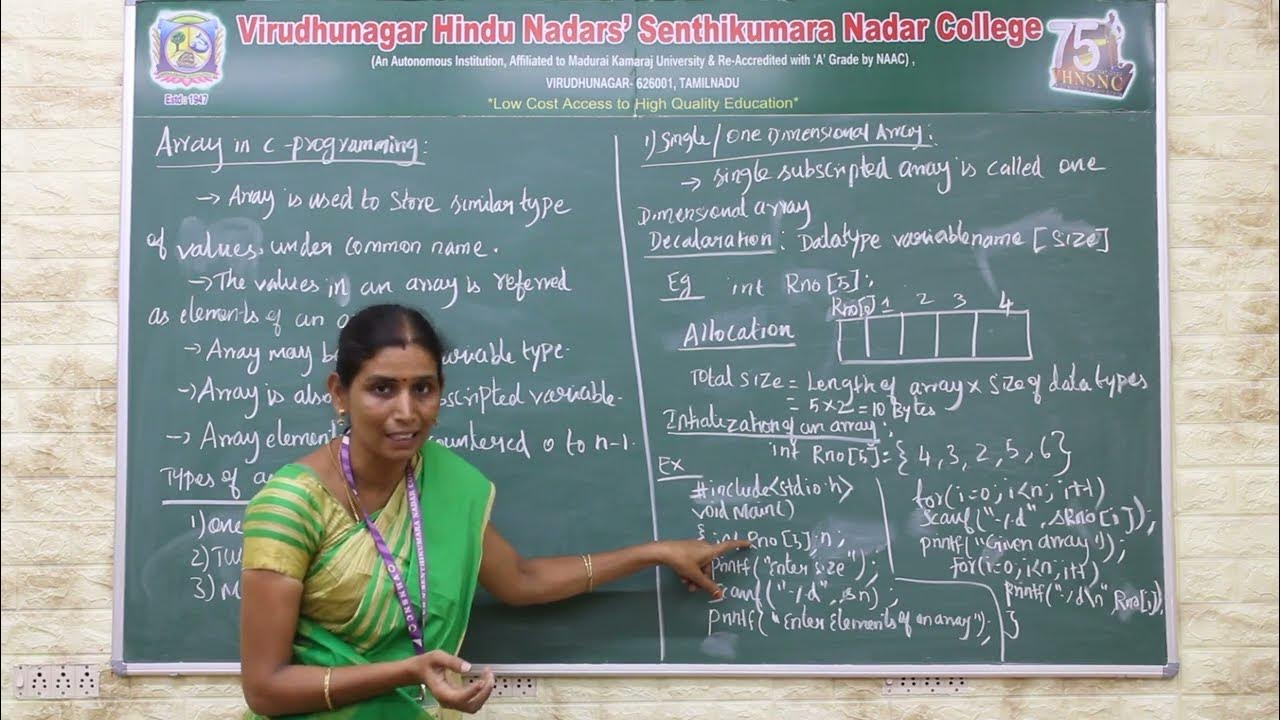 Virudhunagar Hindu Nadars' Senthikumara Nadar College
(An Autonomous Institution, Affiliated to Madurai Kamaraj University & Re-Accredited with 'A' Grade by NAAC) ,
VIRUDHUNAGAR- 626001, TAMILNADU
*Low Cost Access to High Quality Education*
Estd : 1947
75
VHNSNC
Array in C-programming:
→ Array is used to Store similar type
of values under common name.
→ The values in an array is referred
as elements of an a
→ Array may b variable type.
→ Array is also bscripted variable.
→ Array element countered 0 to n-1.
Types of a
1) one
2) Tw
3) M
1) Single / One Dimensional Array:
→ single subscripted array is called one
Dimensional array
Decalaration : Datatype variablename [size]
Eg int Rno [5];
Rno[0] 1 2 3 4
Allocation
Total size = Length of array x size of data types
= 5 x 2 = 10 Bytes
Intialization of an array:
int Rno[5] = { 4, 3, 2, 5, 6 }
Ex
#include<stdio.h>
void main()
{ int Rno [5], n;
printf("Enter size");
Scanf("%d", &n);
printf("Enter Elements of an array");
for(i=0; i<n; i++)
Scanf("%d", &Rno[i]);
printf("Given array");
for(i=0; i<n; i++)
printf("%d\n", Rno[i]);
}
VHNSNC
SENTHIKUMARA NADAR CO